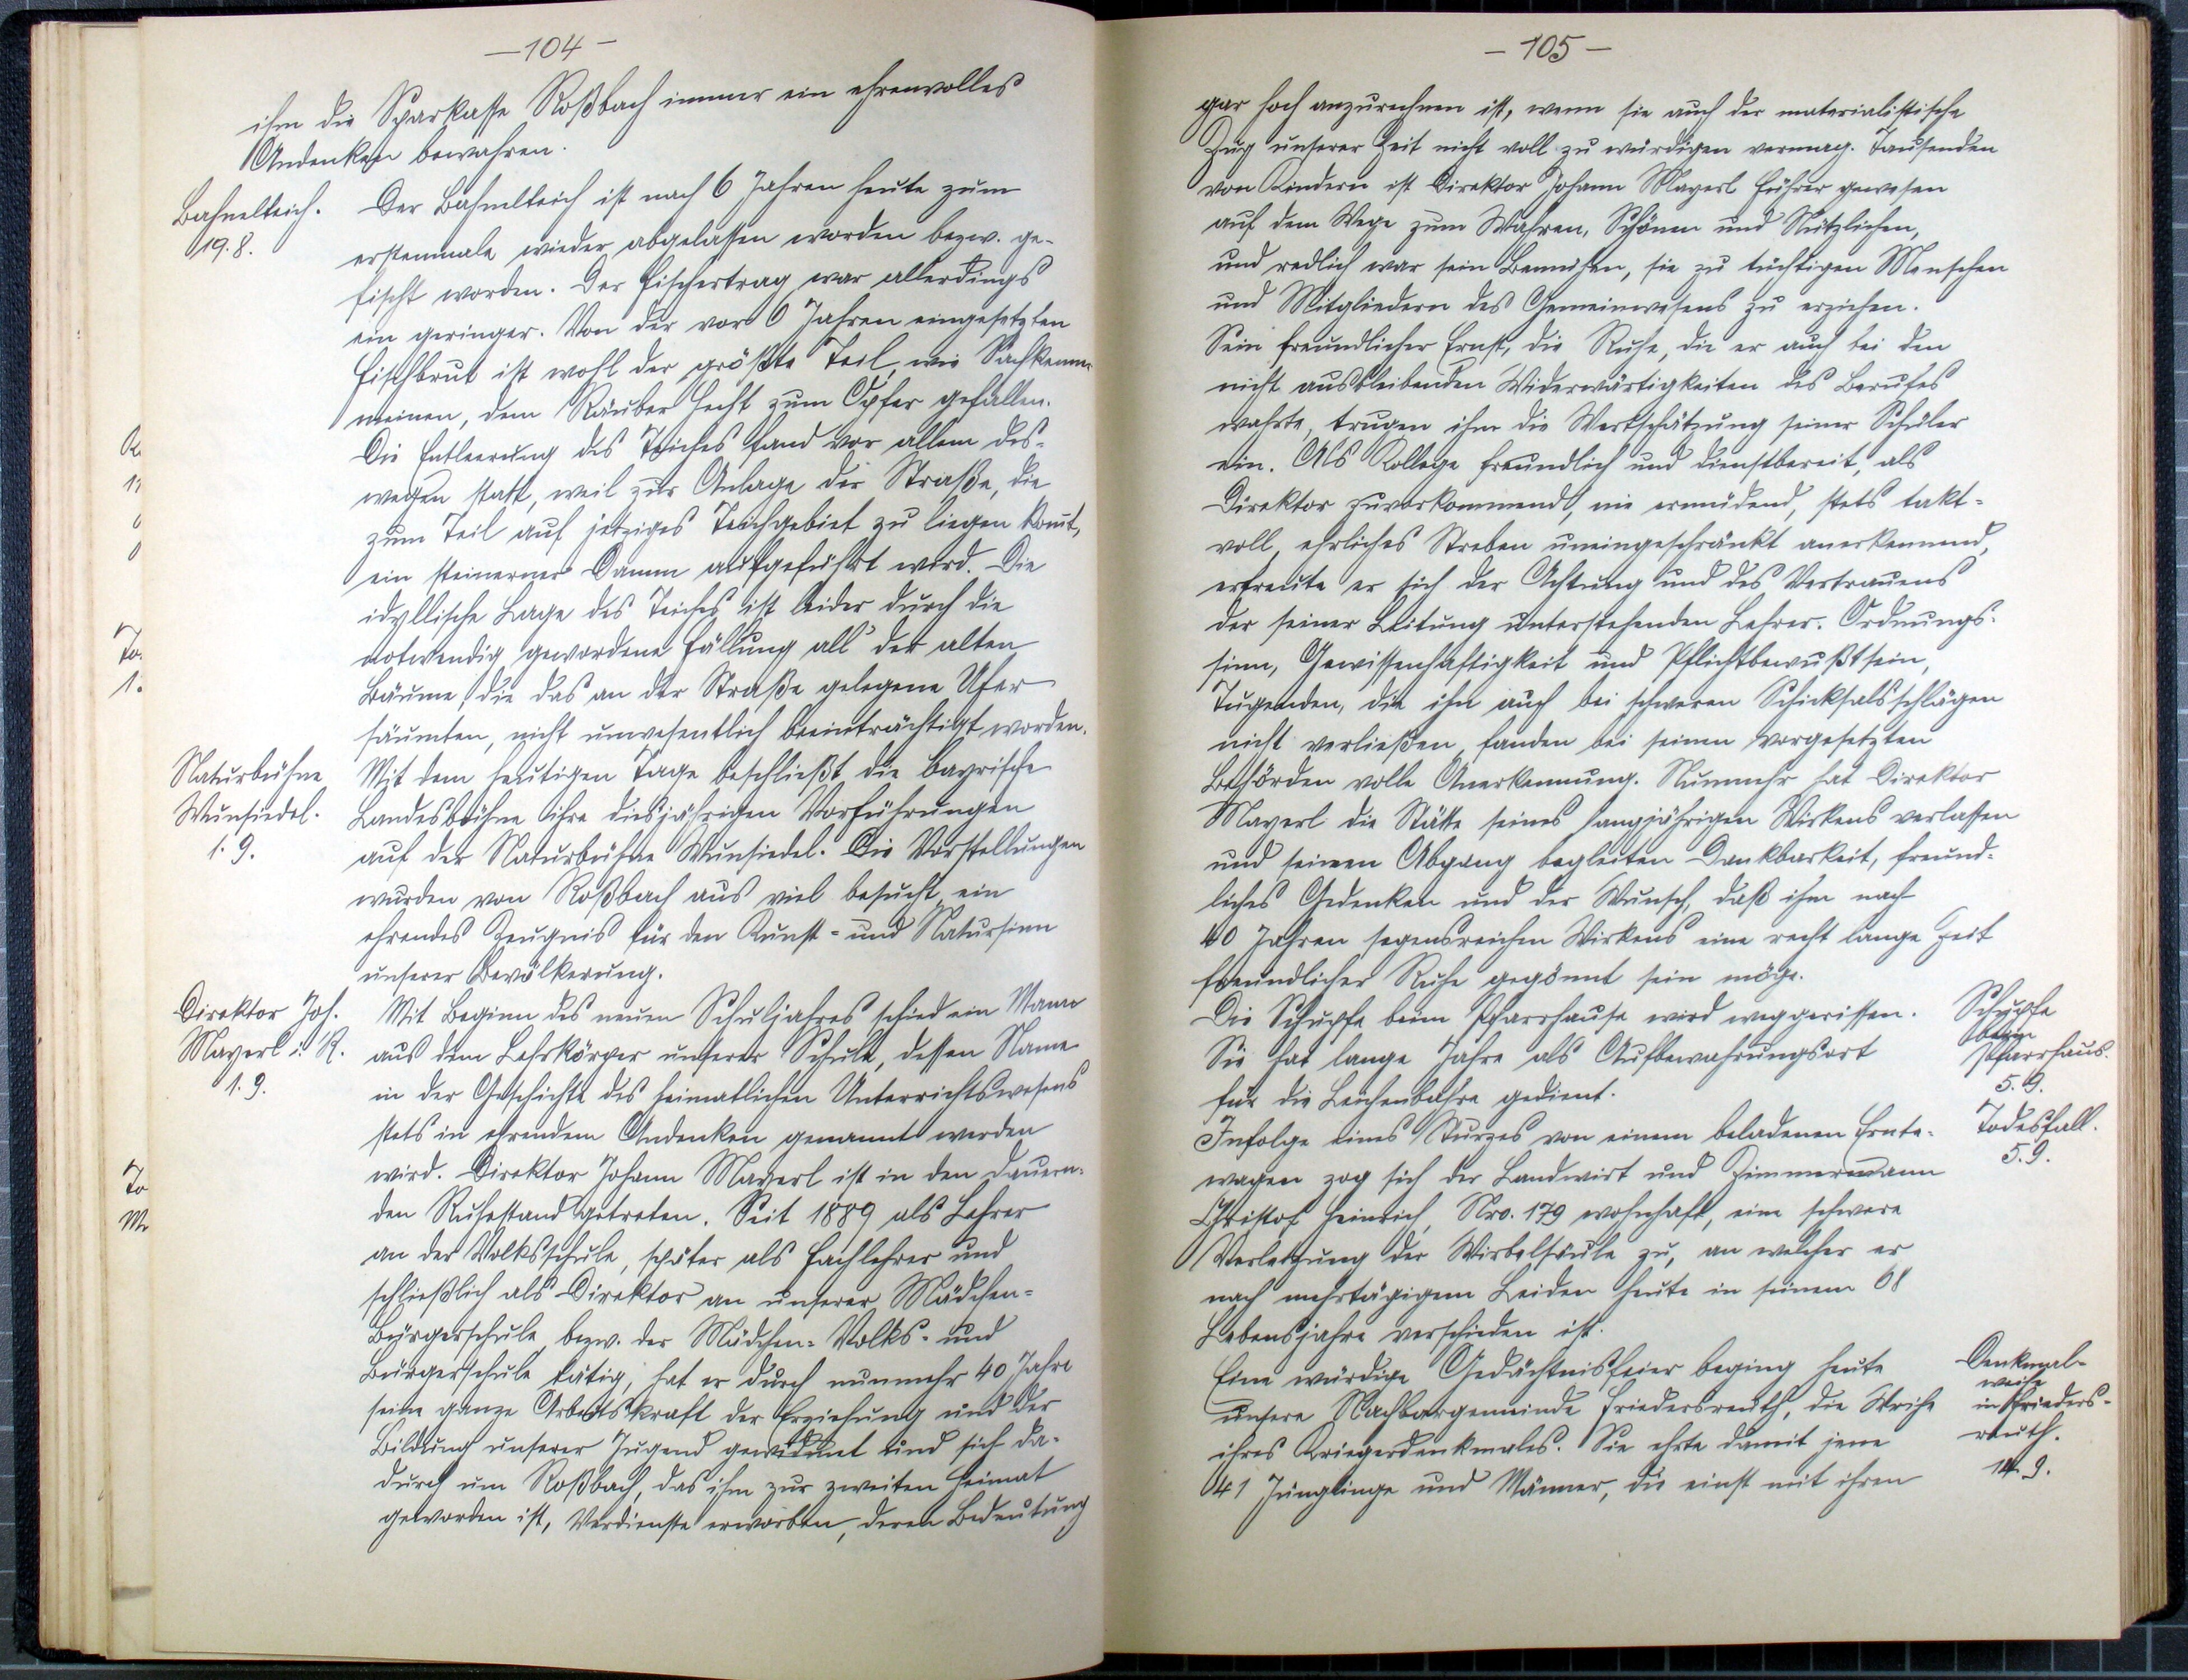 —104—
ihm die Sparkasse Roßbach immer ein ehrenvolles
Andenken bewahren.
Bahnelteich.
19.8.
Der Bahnelteich ist nach 6 Jahren heute zum
erstenmale wieder abgelassen worden bezw. ge-
fischt worden. Der Fischertrag war allerdings
ein geringer. Von der vor 6 Jahren eingesetzten
Fischbrut ist wohl der größte Teil, wie Sachkenner
meinen, dem Räuber Hecht zum Opfer gefallen.
Die Entleerung des Teiches fand vor allem des-
wegen statt, weil zur Anlage der Straße, die
zum Teil auf jetziges Teichgebiet zu liegen komt,
ein steinerner Damm aufgeführt wird. Die
idyllische Lage des Teiches ist leider durch die
notwendig gewordene Fällung all' der alten
Bäume, die das an der Straße gelegene Ufer
säumten, nicht unwesentlich beeinträchtigt worden.
Naturbühne
Wunsiedel.
1.9.
Mit dem heutigen Tage beschließt die bayrische
Landesbühne ihre diesjährigen Vorführungen
auf der Naturbühne Wunsiedel. Die Vorstellungen
wurden von Roßbach aus viel besucht, ein
ehrendes Zeugnis für den Kunst- und Natursinn
unserer Bevölkerung.
Direktor Joh.
Mayerl i. R.
1.9.
Mit Beginn des neuen Schuljahres schied ein Mann
aus dem Lehrkörper unserer Schule, dessen Name
in der Geschichte des heimatlichen Unterrichtswesens
stets in ehrendem Andenken genannt werden
wird. Direktor Johann Mayerl ist in den dauern-
den Ruhestand getreten. Seit 1889 als Lehrer
an der Volksschule, später als Fachlehrer und
schließlich als Direktor an unserer Mädchen-
Bürgerschule bezw. der Mädchen- Volks- und
Bürgerschule tätig, hat er durch nunmehr 40 Jahre
seine ganze Arbeitskraft der Erziehung und der
Bildung unserer Jugend gewidmet und sich da-
durch um Roßbach, das ihm zur zweiten Heimat
geworden ist, Verdienste erworben, deren Bedeutung
—105—
gar hoch anzurechnen ist, wenn sie auch der materialistische
Zug unserer Zeit nicht voll zu würdigen vermag. Tausenden
von Kindern ist Direktor Johann Mayerl Führer gewesen
auf dem Wege zum Wahren, Schönen und Nützlichen,
und redlich war sein Bemühen, sie zu tüchtigen Menschen
und Mitgliedern des Gemeinwesens zu erziehen.
Sein freundlicher Ernst, die Ruhe, die er auch bei den
nicht ausbleibenden Widerwärtigkeiten des Berufes
wahrte, trugen ihm die Wertschätzung seiner Schüler
ein. Als Kollege freundlich und dienstbereit, als
Direktor zuvorkommend, nie ermüdend, stets takt-
voll, ehrliches Streben uneingeschränkt anerkennend,
erfreute er sich der Achtung und des Vertrauens
der seiner Leitung unterstehenden Lehrer. Ordnungs-
sinn, Gewissenhaftigkeit und Pflichtbewußtsein,
Tugenden, die ihn auch bei schweren Schicksalsschlägen
nicht verließen, fanden bei seinen vorgesetzten
Behörden volle Anerkennung. Nunmehr hat Direktor
Mayerl die Stätte seines langjährigen Wirkens verlassen
und seinen Abgang begleiten Dankbarkeit, freund-
liches Gedenken und der Wunsch, daß ihm nach
40 Jahren segensreichen Wirkens eine recht lange Zeit
freundlicher Ruhe gegönnt sein möge.
Die Schupfe beim Pfarrhause wird weggerissen.
Sie hat lange Jahre als Aufbewahrungsort
für die Leichenbahre gedient.
Schupfe
beim
Pfarrhaus.
5.9.
Infolge eines Sturzes von einem beladenen Ernte-
wagen zog sich der Landwirt und Zimmermann
Christof Heinrich, Nro. 179 wohnhaft, eine schwere
Verletzung der Wirbelsäule zu, an welcher er
nach mehrtägigem Leiden heute in seinem 68
Lebensjahre verschieden ist.
Todesfall.
5.9.
Eine würdige Gedächtnisfeier beging heute
unsere Nachbargemeinde Friedersreuth, die Weihe
ihres Kriegerdenkmales. Sie ehrte damit jene
41 Jünglinge und Männer, die einst mit ihren
Denkmal-
weihe
in Frieders-
reuth.
14.9.